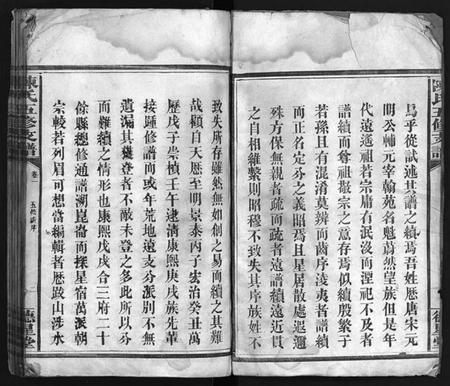 陳氏五修支譜
焉乎從試述其譜之續焉吾姓歷唐宋元
明公輔元宰翰苑名魁蔚然望族但是年
代遠遙祖若宗庸有泯沒而湮祀不及者
譜續而尊祖敬宗之意存焉似續殷繁子
若孫且有混淆莫辨而齒序淩夷者譜續
而正名定分之義昭焉且星居散處遐邇
殊方保無親者疏而疏者遠譜續遠近貫
之自相維繫則昭穆不致失其序族姓不
致失所存雖然無如創之易而續之其難
哉顧自天歷至明景泰丙子宏治癸丑萬
歷戊子崇禎壬午逮清康熙庚戌族先輩
接踵修譜而或年荒地遠支分派別不無
遺漏其幾登者不敵未登之多此所以分
而難續之情形也康熙戊戌合三府二十
餘縣總修通譜溯崑崙而探星宿萬派朝
宗較若列眉可想當編輯者歷跋山涉水
陳氏五修支譜
卷一
五修新序
德星堂
德星堂